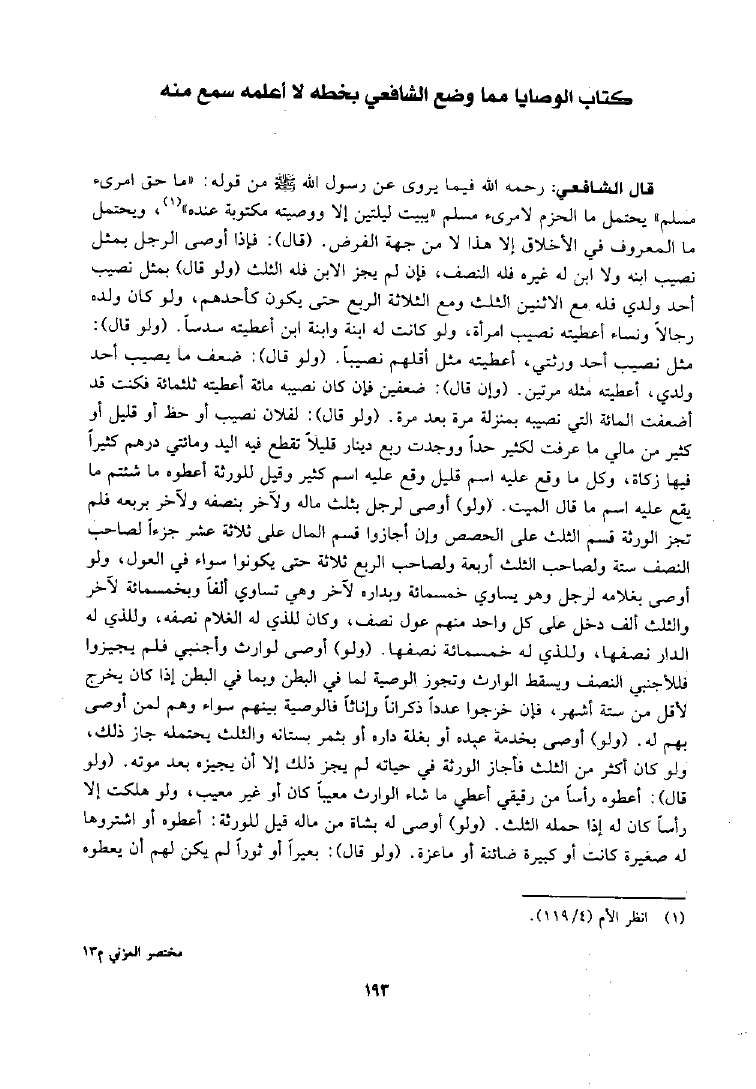 كتاب الوصايا مما وضع الشافعي بخطه لا أعلمه سمع منه
قال الشافعي: رحمه الله فيما يروى عن رسول الله ﷺ من قوله: «ما حق امرىء
مسلم» يحتمل ما الحزم لامرىء مسلم «يبيت ليلتين إلا ووصيته مكتوبة عنده»(١)، ويحتمل
ما المعروف في الأخلاق إلا هذا لا من جهة الفرض. (قال): فإذا أوصى الرجل بمثل
نصيب ابنه ولا ابن له غيره فله النصف، فإن لم يجز الابن فله الثلث (ولو قال) بمثل نصيب
أحد ولدي فله مع الاثنين الثلث ومع الثلاثة الربع حتى يكون كأحدهم، ولو كان ولده
رجالاً ونساء أعطيته نصيب امرأة، ولو كانت له ابنة وابنة ابن أعطيته سدساً. (ولو قال):
مثل نصيب أحد ورثتي، أعطيته مثل أقلهم نصيباً. (ولو قال): ضعف ما يصيب أحد
ولدي، أعطيته مثله مرتين. (وإن قال): ضعفين فإن كان نصيبه مائة أعطيته ثلثمائة فكنت قد
أضعفت المائة التي نصيبه بمنزلة مرة بعد مرة. (ولو قال): لفلان نصيب أو حظ أو قليل أو
كثير من مالي ما عرفت لكثير حداً ووجدت ربع دينار قليلاً تقطع فيه اليد ومائتي درهم كثيراً
فيها زكاة، وكل ما وقع عليه اسم قليل وقع عليه اسم كثير وقيل للورثة أعطوه ما شئتم ما
يقع عليه اسم ما قال الميت. (ولو) أوصى لرجل بثلث ماله ولآخر بنصفه ولآخر بربعه فلم
تجز الورثة قسم الثلث على الحصص وإن أجازوا قسم المال على ثلاثة عشر جزءاً لصاحب
النصف ستة ولصاحب الثلث أربعة ولصاحب الربع ثلاثة حتى يكونوا سواء في العول، ولو
أوصى بغلامه لرجل وهو يساوي خمسمائة وبداره لآخر وهي تساوي ألفاً وبخمسمائة لآخر
والثلث ألف دخل على كل واحد منهم عول نصف، وكان للذي له الغلام نصفه، وللذي له
الدار نصفها، وللذي له خمسمائة نصفها. (ولو) أوصى لوارث وأجنبي فلم يجيزوا
فللأجنبي النصف ويسقط الوارث وتجوز الوصية لما في البطن وبما في البطن إذا كان يخرج
لأقل من ستة أشهر، فإن خرجوا عدداً ذكراناً وإناثاً فالوصية بينهم سواء وهم لمن أوصى
بهم له. (ولو) أوصى بخدمة عبده أو بغلة داره أو بثمر بستانه والثلث يحتمله جاز ذلك،
ولو كان أكثر من الثلث فأجاز الورثة في حياته لم يجز ذلك إلا أن يجيزه بعد موته. (ولو
قال): أعطوه رأساً من رقيقي أعطي ما شاء الوارث معيباً كان أو غير معيب، ولو هلكت إلا
رأساً كان له إذا حمله الثلث. (ولو) أوصى له بشاة من ماله قيل للورثة: أعطوه أو اشتروها
له صغيرة كانت أو كبيرة ضائنة أو ماعزة. (ولو قال): بعيراً أو ثوراً لم يكن لهم أن يعطوه
(١) انظر الأم (٤/١١٩).
مختصر المزني م١٣
١٩٣